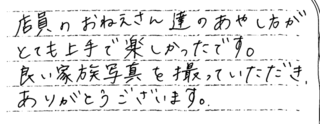 店員のおねえさん達のあやし方が
とても上手で楽しかったです。
良い家族写真を撮っていただき、
ありがとうございます。